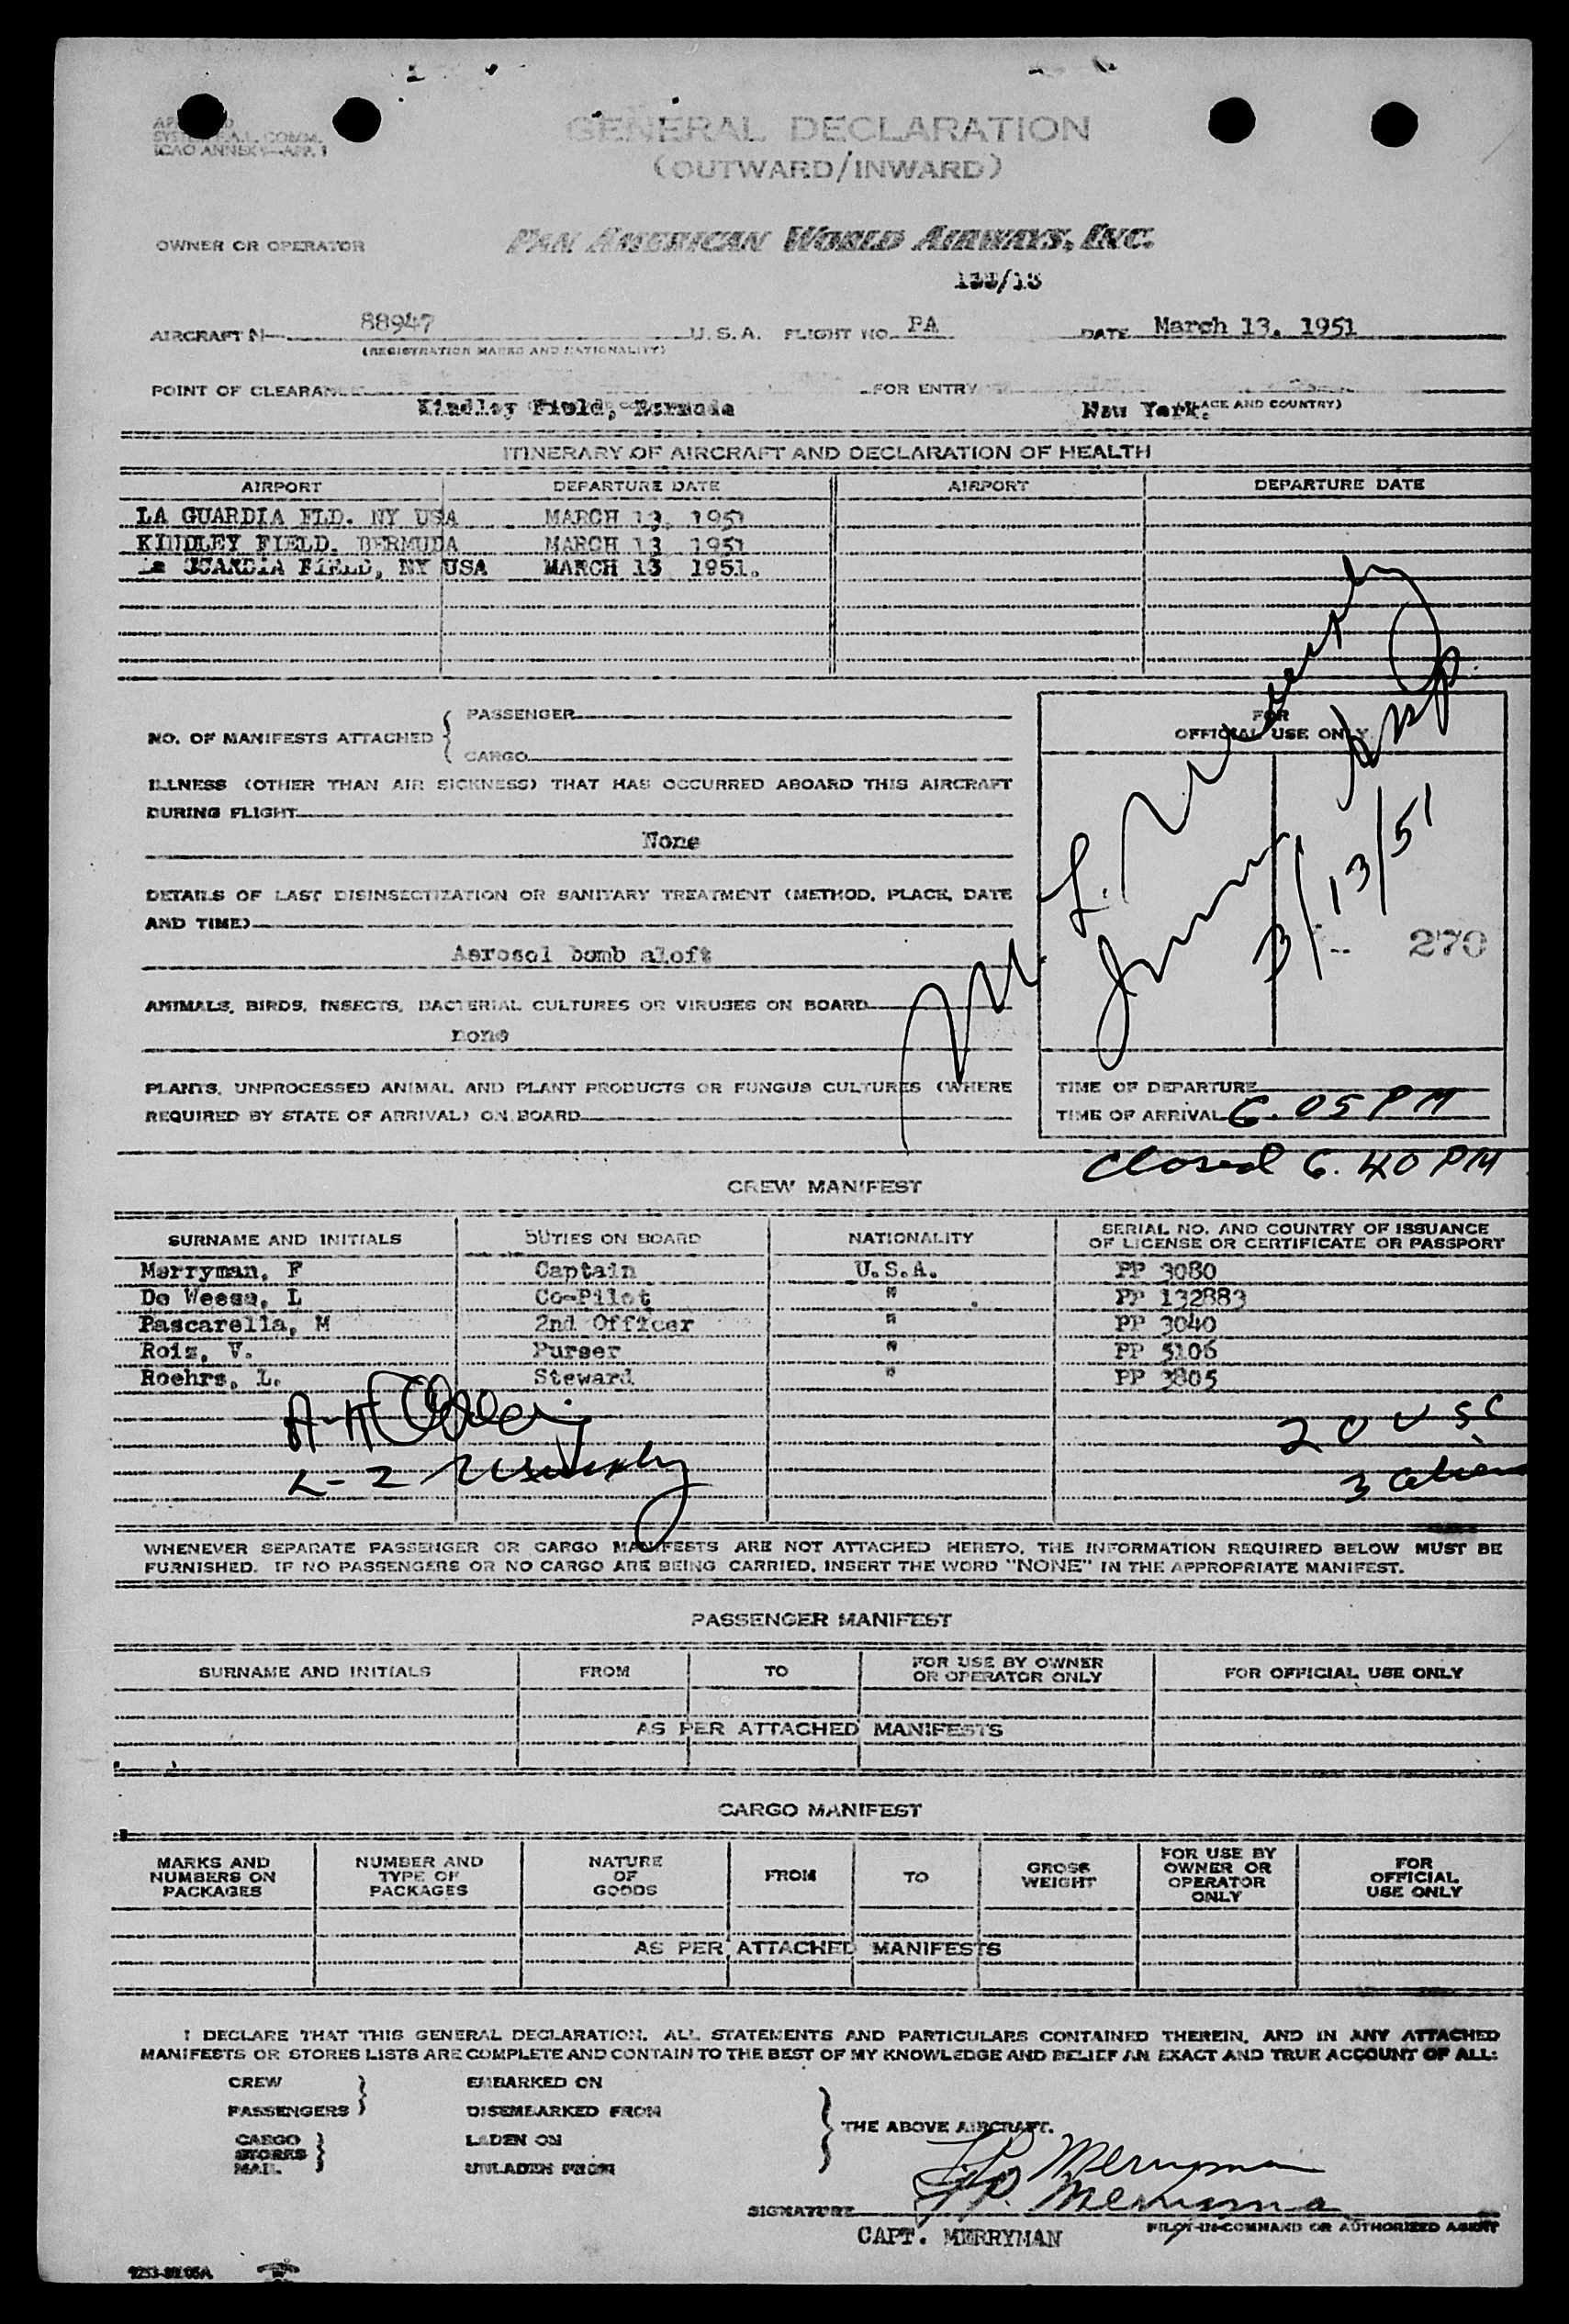 GENERAL DECLARATION
(OUTWARD/INWARD)
ICAO ANNEX 9—APP. 1
OWNER OR OPERATOR PAN AMERICAN WORLD AIRWAYS, INC.
AIRCRAFT N 88947 U. S. A. FLIGHT NO. PA DATE March 13, 1951
(REGISTRATION MARKS AND NATIONALITY)
POINT OF CLEARANCE FOR ENTRY
Kindley Field, Bermuda New York. (PLACE AND COUNTRY)
ITINERARY OF AIRCRAFT AND DECLARATION OF HEALTH
AIRPORT DEPARTURE DATE AIRPORT DEPARTURE DATE
LA GUARDIA FLD. NY USA MARCH 13, 1951
KINDLEY FIELD. BERMUDA MARCH 13 1951
La GUARDIA FIELD, NY USA MARCH 13 1951.
NO. OF MANIFESTS ATTACHED { PASSENGER
CARGO
FOR
OFFICIAL USE ONLY
ILLNESS (OTHER THAN AIR SICKNESS) THAT HAS OCCURRED ABOARD THIS AIRCRAFT
DURING FLIGHT
None
DETAILS OF LAST DISINSECTIZATION OR SANITARY TREATMENT (METHOD, PLACE, DATE
AND TIME)
Aerosol bomb aloft
3/13/51
270
ANIMALS, BIRDS, INSECTS, BACTERIAL CULTURES OR VIRUSES ON BOARD
none
PLANTS, UNPROCESSED ANIMAL AND PLANT PRODUCTS OR FUNGUS CULTURES (WHERE
REQUIRED BY STATE OF ARRIVAL) ON BOARD
TIME OF DEPARTURE
TIME OF ARRIVAL 6.05 PM
Closed 6.40 PM
CREW MANIFEST
SURNAME AND INITIALS DUTIES ON BOARD NATIONALITY SERIAL NO. AND COUNTRY OF ISSUANCE
OF LICENSE OR CERTIFICATE OR PASSPORT
Merryman, F Captain U.S.A. PP 3080
De Weese, L Co-Pilot " PP 132883
Pascarella, M 2nd Officer " PP 3040
Rois, V. Purser " PP 5106
Roehrs, L. Steward " PP 3805
20 USC
3 alien
WHENEVER SEPARATE PASSENGER OR CARGO MANIFESTS ARE NOT ATTACHED HERETO, THE INFORMATION REQUIRED BELOW MUST BE
FURNISHED. IF NO PASSENGERS OR NO CARGO ARE BEING CARRIED, INSERT THE WORD "NONE" IN THE APPROPRIATE MANIFEST.
PASSENGER MANIFEST
SURNAME AND INITIALS FROM TO FOR USE BY OWNER
OR OPERATOR ONLY FOR OFFICIAL USE ONLY
AS PER ATTACHED MANIFESTS
CARGO MANIFEST
MARKS AND
NUMBERS ON
PACKAGES NUMBER AND
TYPE OF
PACKAGES NATURE
OF
GOODS FROM TO GROSS
WEIGHT FOR USE BY
OWNER OR
OPERATOR
ONLY FOR
OFFICIAL
USE ONLY
AS PER ATTACHED MANIFESTS
I DECLARE THAT THIS GENERAL DECLARATION, ALL STATEMENTS AND PARTICULARS CONTAINED THEREIN, AND IN ANY ATTACHED
MANIFESTS OR STORES LISTS ARE COMPLETE AND CONTAIN TO THE BEST OF MY KNOWLEDGE AND BELIEF AN EXACT AND TRUE ACCOUNT OF ALL:
CREW } EMBARKED ON
PASSENGERS DISEMBARKED FROM
THE ABOVE AIRCRAFT.
CARGO LADEN ON
STORES }
MAIL UNLADEN FROM
F.P. Merryman
SIGNATURE F.P. Merryman
CAPT. MERRYMAN PILOT-IN-COMMAND OR AUTHORIZED AGENT